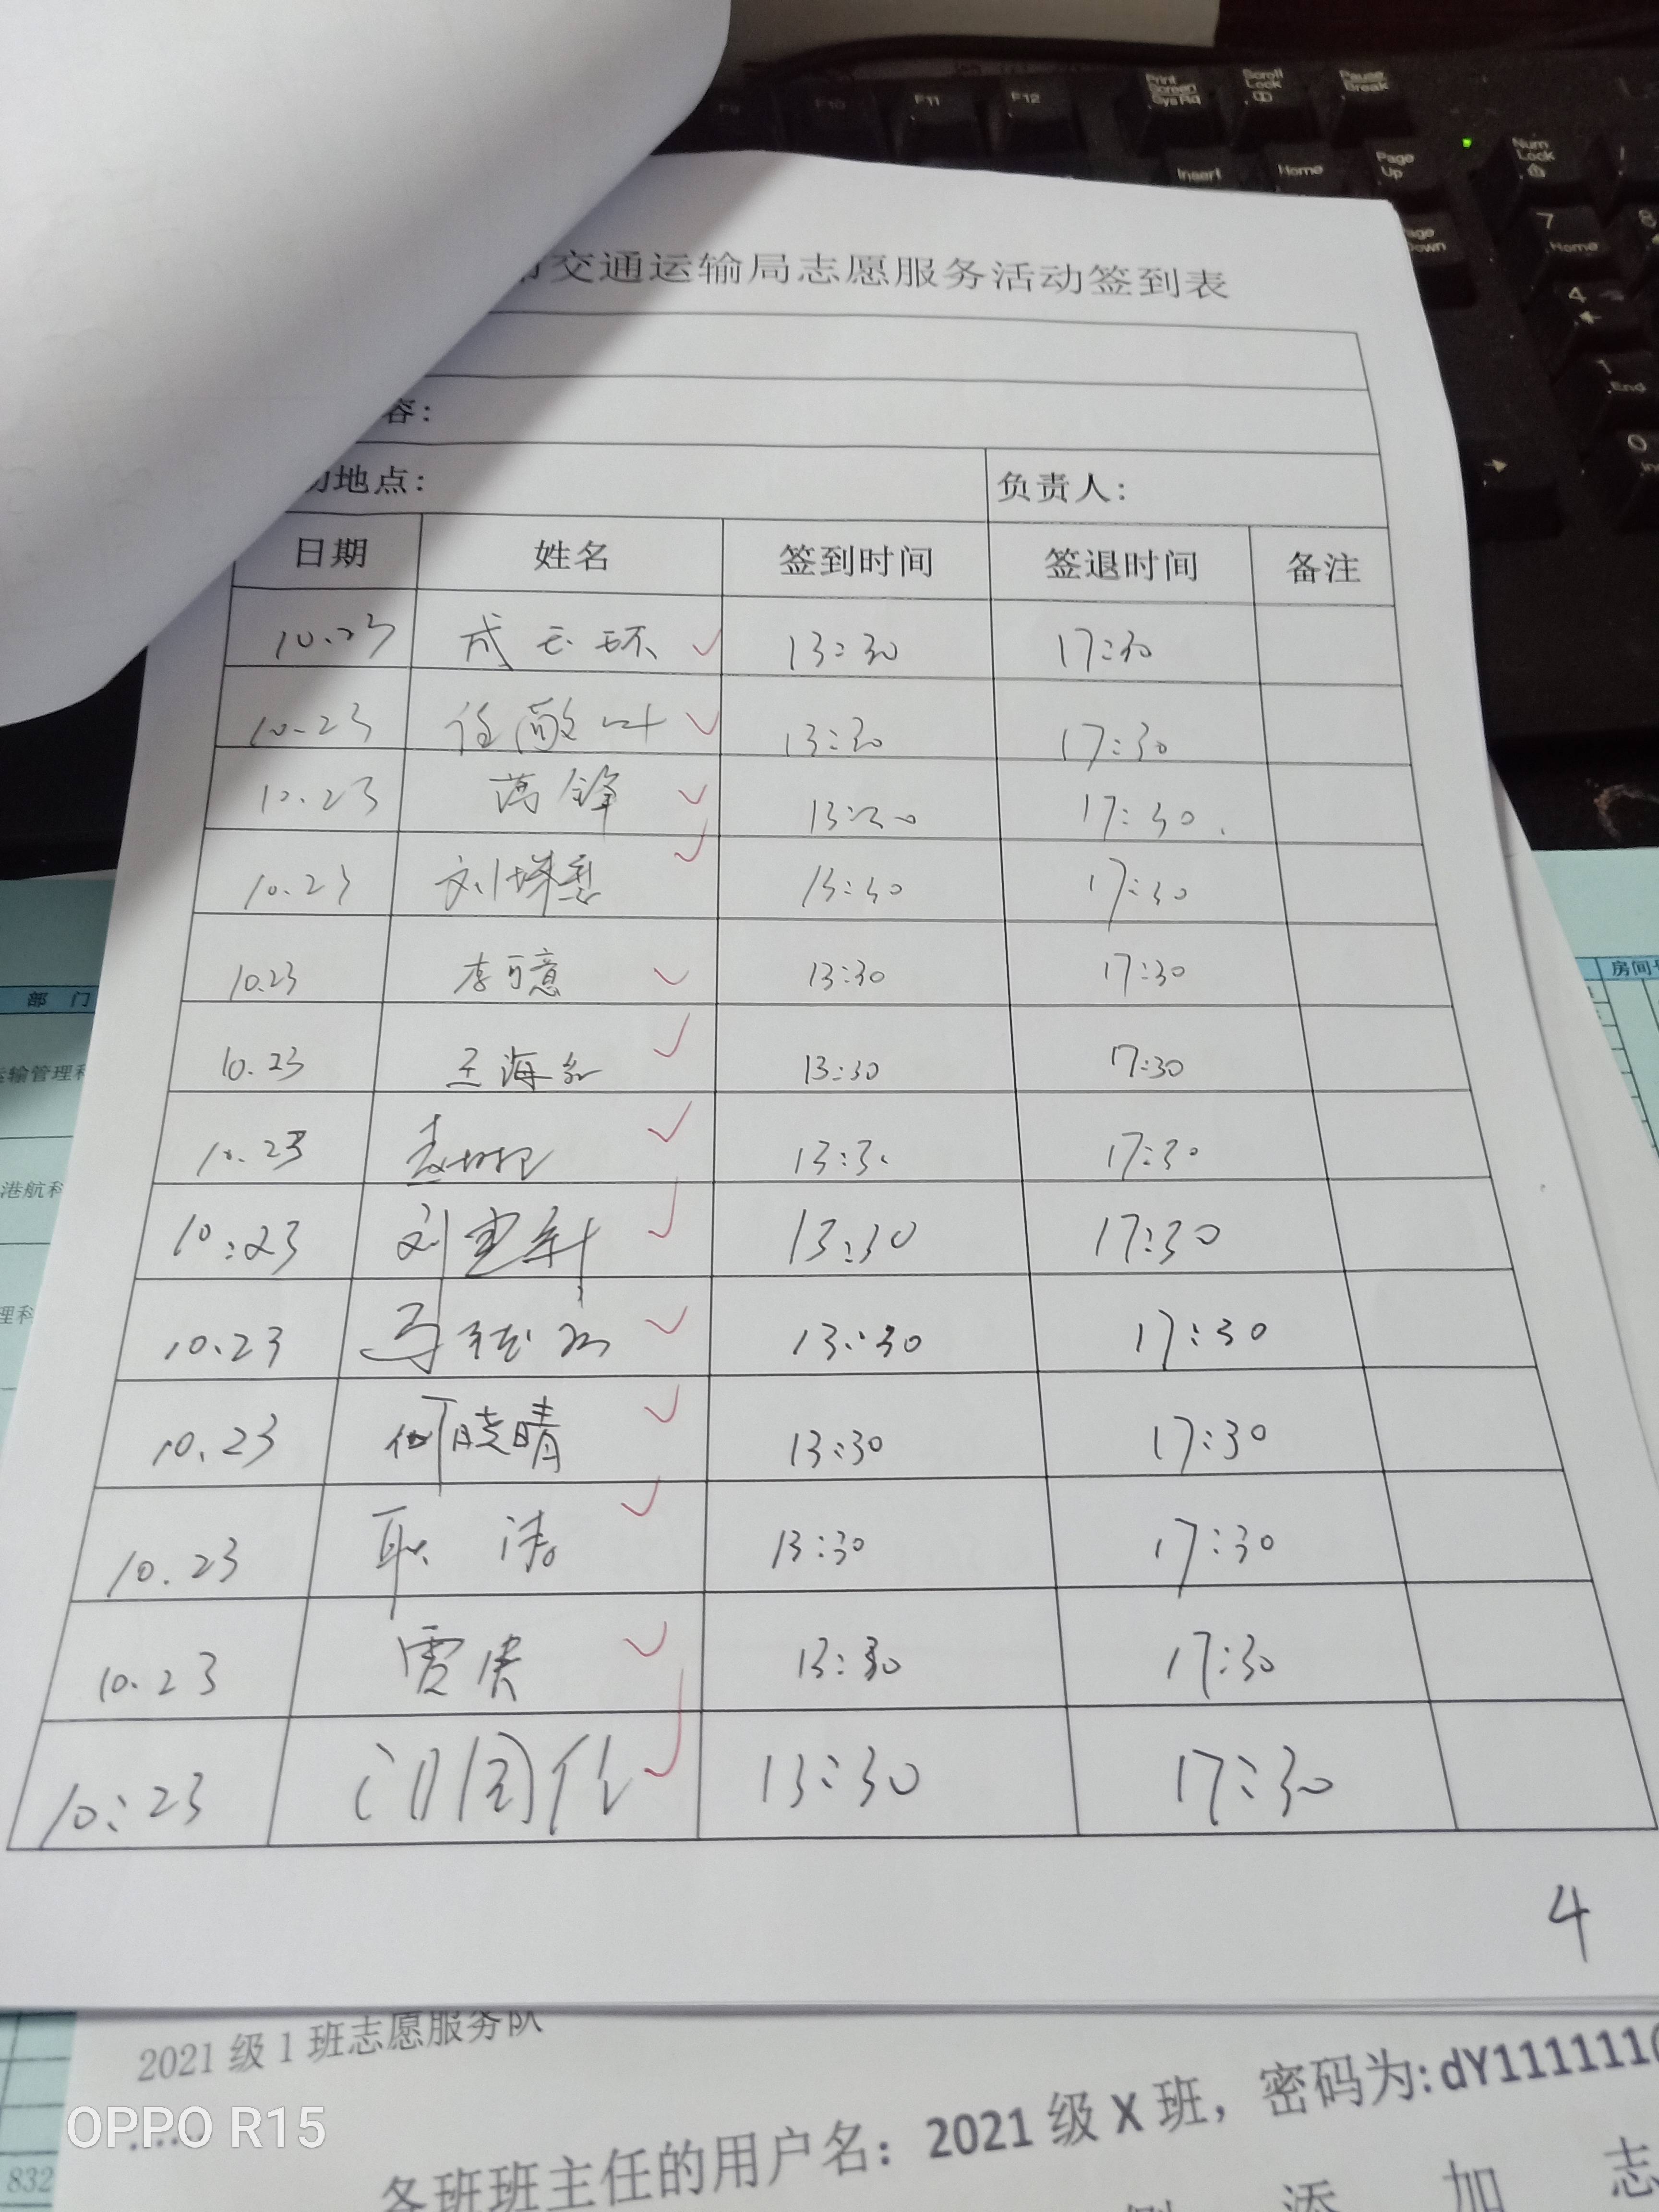 F10 F11 F12 Print Screen SysRq Scroll Lock Pause Break
Insert Home Page Up Num Lock
7 Home 8
4
1 End
0
交通运输局志愿服务活动签到表
容:
地点: 负责人:
日期 姓名 签到时间 签退时间 备注
10.23 成玉环 13:30 17:30
10.23 任敬叶 13:30 17:30
10.23 万锋 13:30 17:30
10.23 刘 13:30 17:30
10.23 李可意 13:30 17:30
10.23 王海 13:30 17:30
10.23 13:30 17:30
10:23 刘 13:30 17:30
10.23 马 13:30 17:30
10.23 何晓晴 13:30 17:30
10.23 耿涛 13:30 17:30
10.23 13:30 17:30
10:23 13:30 17:30
4
部门
输管理科
港航科
理科
房间号
2021级1班志愿服务队
......
各班班主任的用户名：2021级X班，密码为:dY111111
832
添加志
OPPO R15